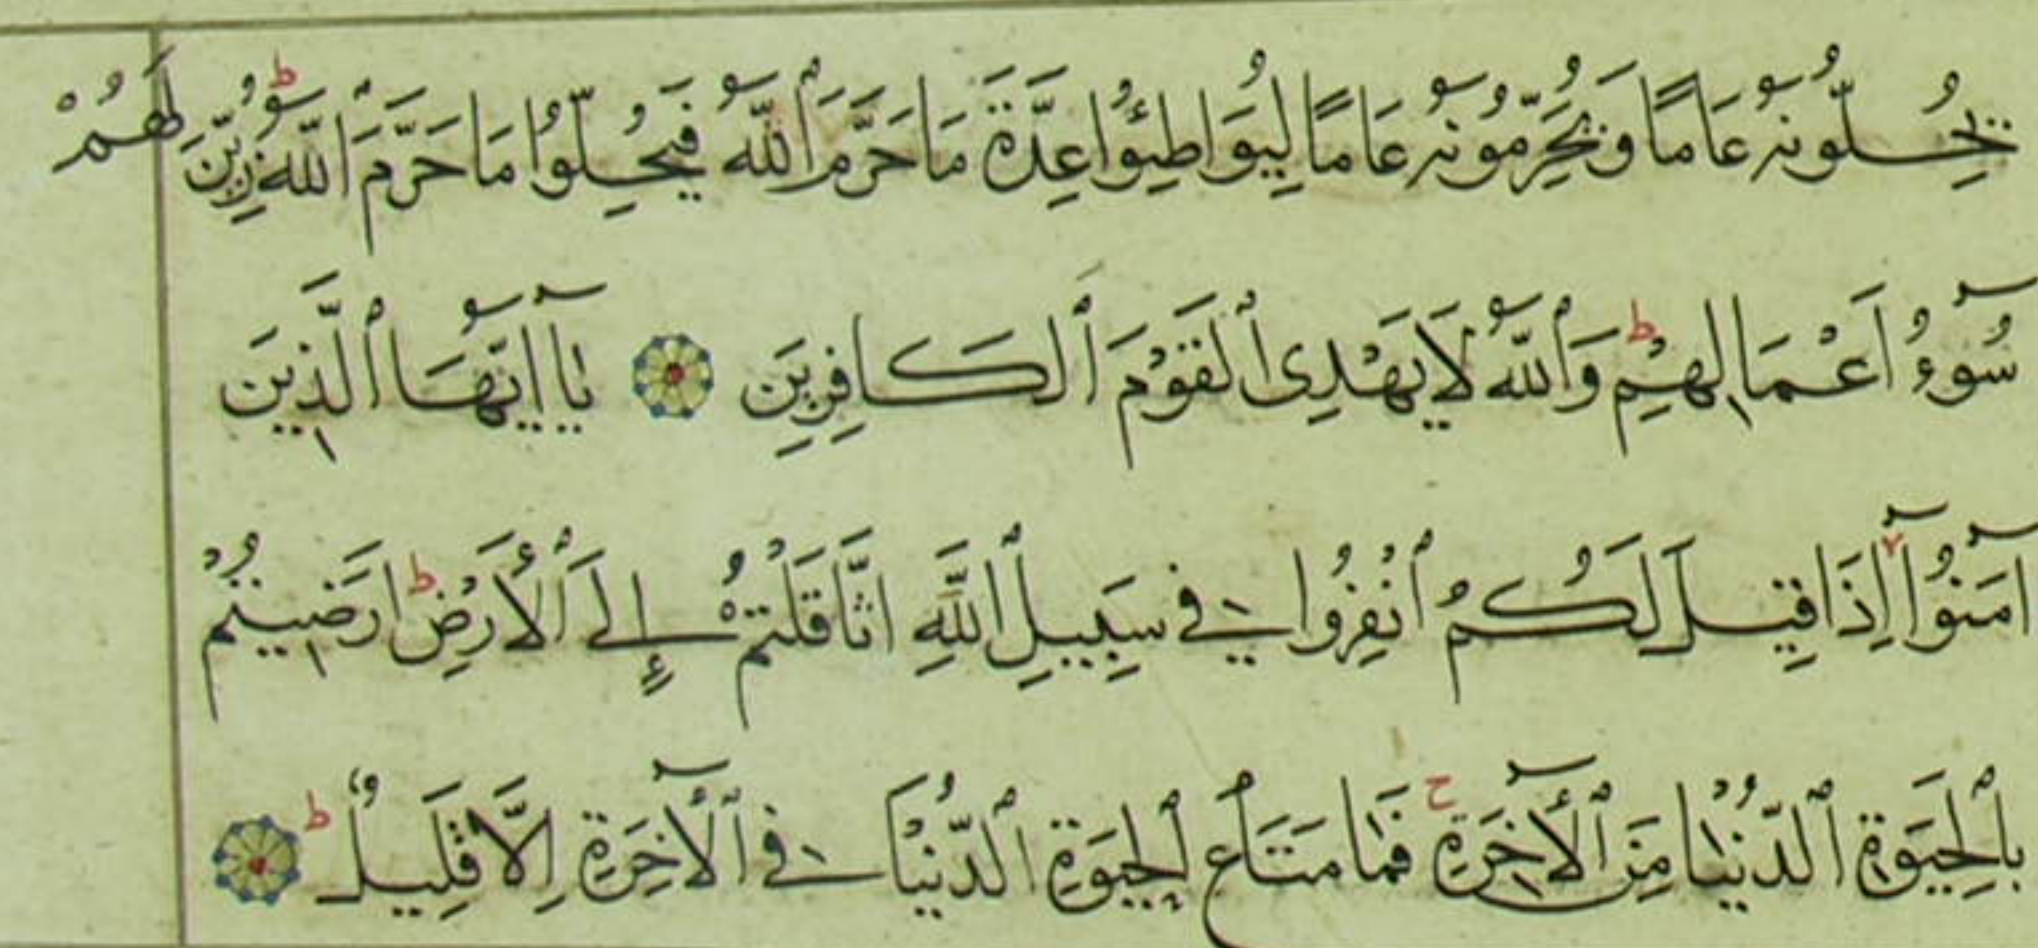 يُحِلُّونَهُ عَامًا وَيُحَرِّمُونَهُ عَامًا لِيُوَاطِئُوا عِدَّةَ مَا حَرَّمَ ٱللَّهُ فَيُحِلُّوا مَا حَرَّمَ ٱللَّهُ ط زُيِّنَ لَهُمْ
سُوٓءُ اَعْمَالِهِمْ ط وَٱللَّهُ لَا يَهْدِى ٱلْقَوْمَ ٱلْكَافِرِينَ يَآ اَيُّهَا ٱلَّذِينَ
اٰمَنُوٓا اِذَا قِيلَ لَكُمُ ٱنْفِرُوا فِي سَبِيلِ ٱللَّهِ اثَّاقَلْتُمْ إِلَى ٱلْأَرْضِ ط اَرَضِيتُمْ
بِٱلْحَيَوةِ ٱلدُّنْيَا مِنَ ٱلْآخِرَةِ ج فَمَا مَتَاعُ ٱلْحَيَوةِ ٱلدُّنْيَا فِي ٱلْآخِرَةِ اِلَّا قَلِيلٌ ط